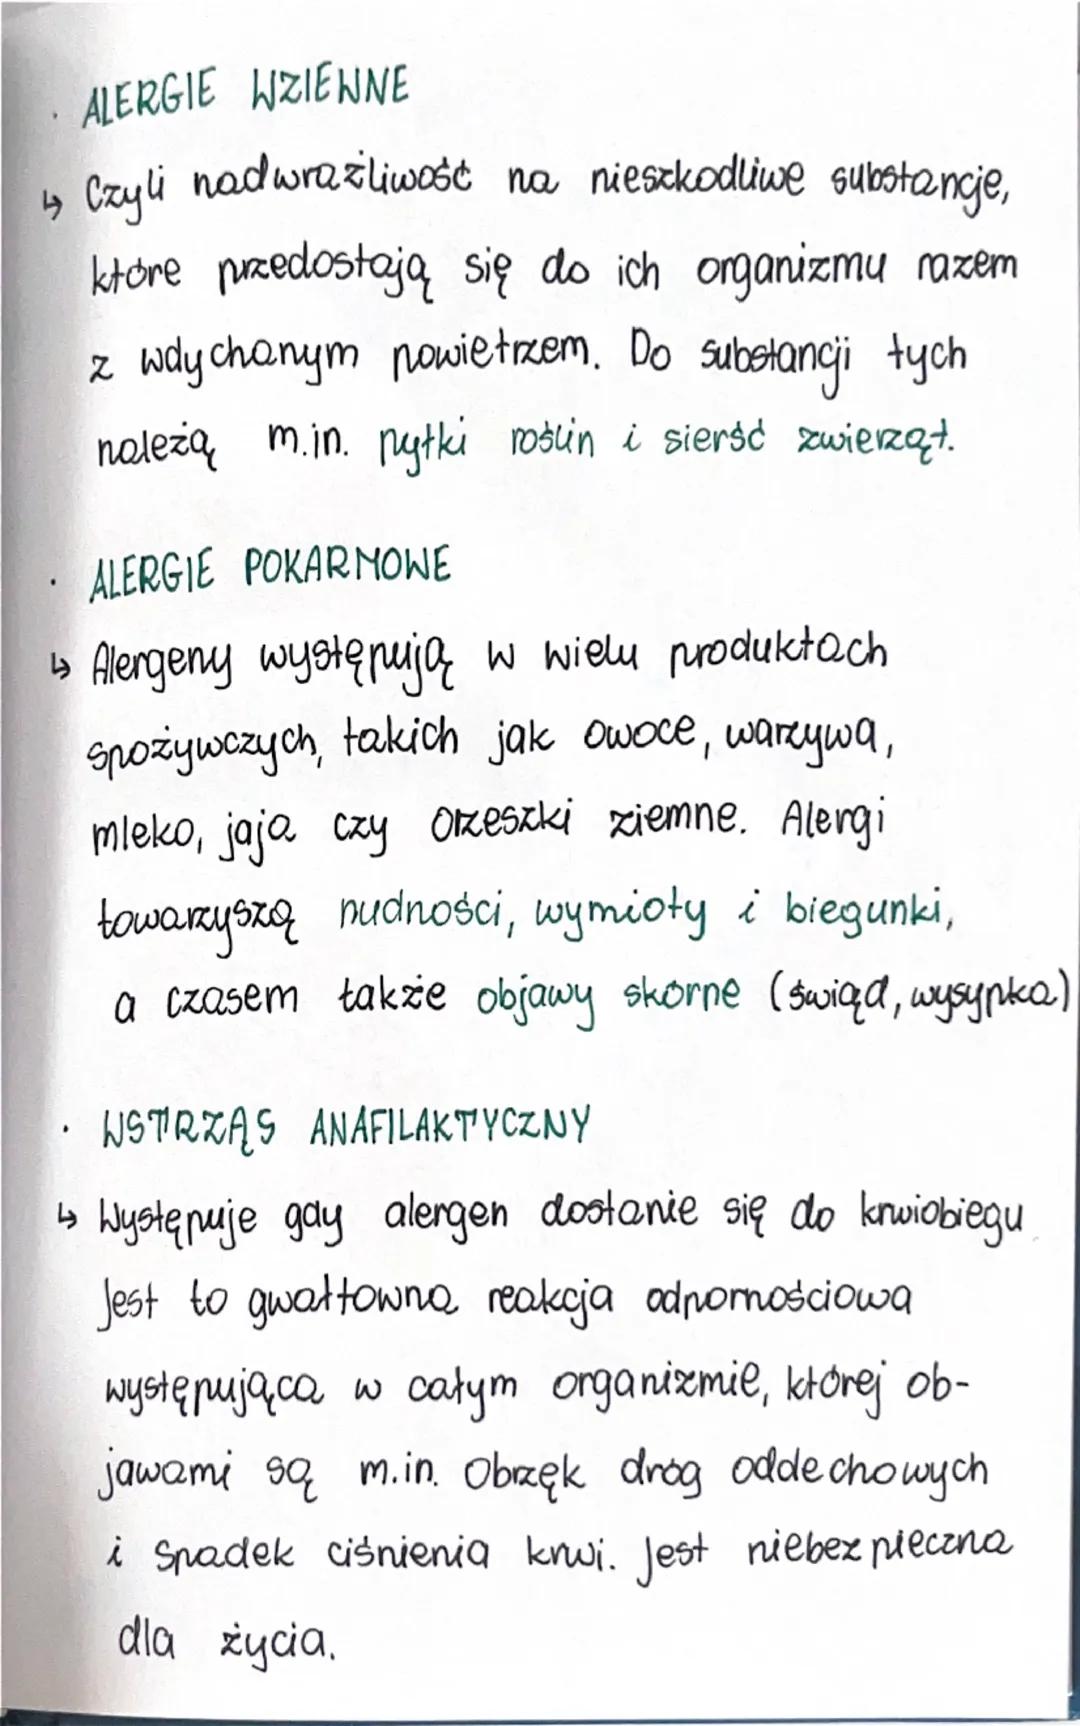 · ALERGIE WZIEWNE
↳ Czyli nadwrażliwość na nieszkodliwe substancje,
które przedostają się do ich organizmu razem
z wdychanym powietrzem. Do substancji tych
należą m.in. pyłki roślin i sierść zwierząt.
· ALERGIE POKARMOWE
↳ Alergeny występują w wielu produktach
spożywczych, takich jak owoce, warzywa,
mleko, jaja czy orzeszki ziemne. Alergi
towarzyszą nudności, wymioty i biegunki,
a czasem także objawy skórne (świąd, wysypka)
· WSTRZĄS ANAFILAKTYCZNY
↳ Występuje gdy alergen dostanie się do krwiobiegu
Jest to gwałtowna reakcja odpornościowa
występująca w całym organizmie, której ob-
jawami są m.in. Obrzęk dróg oddechowych
i spadek ciśnienia krwi. Jest niebezpieczna
dla życia.